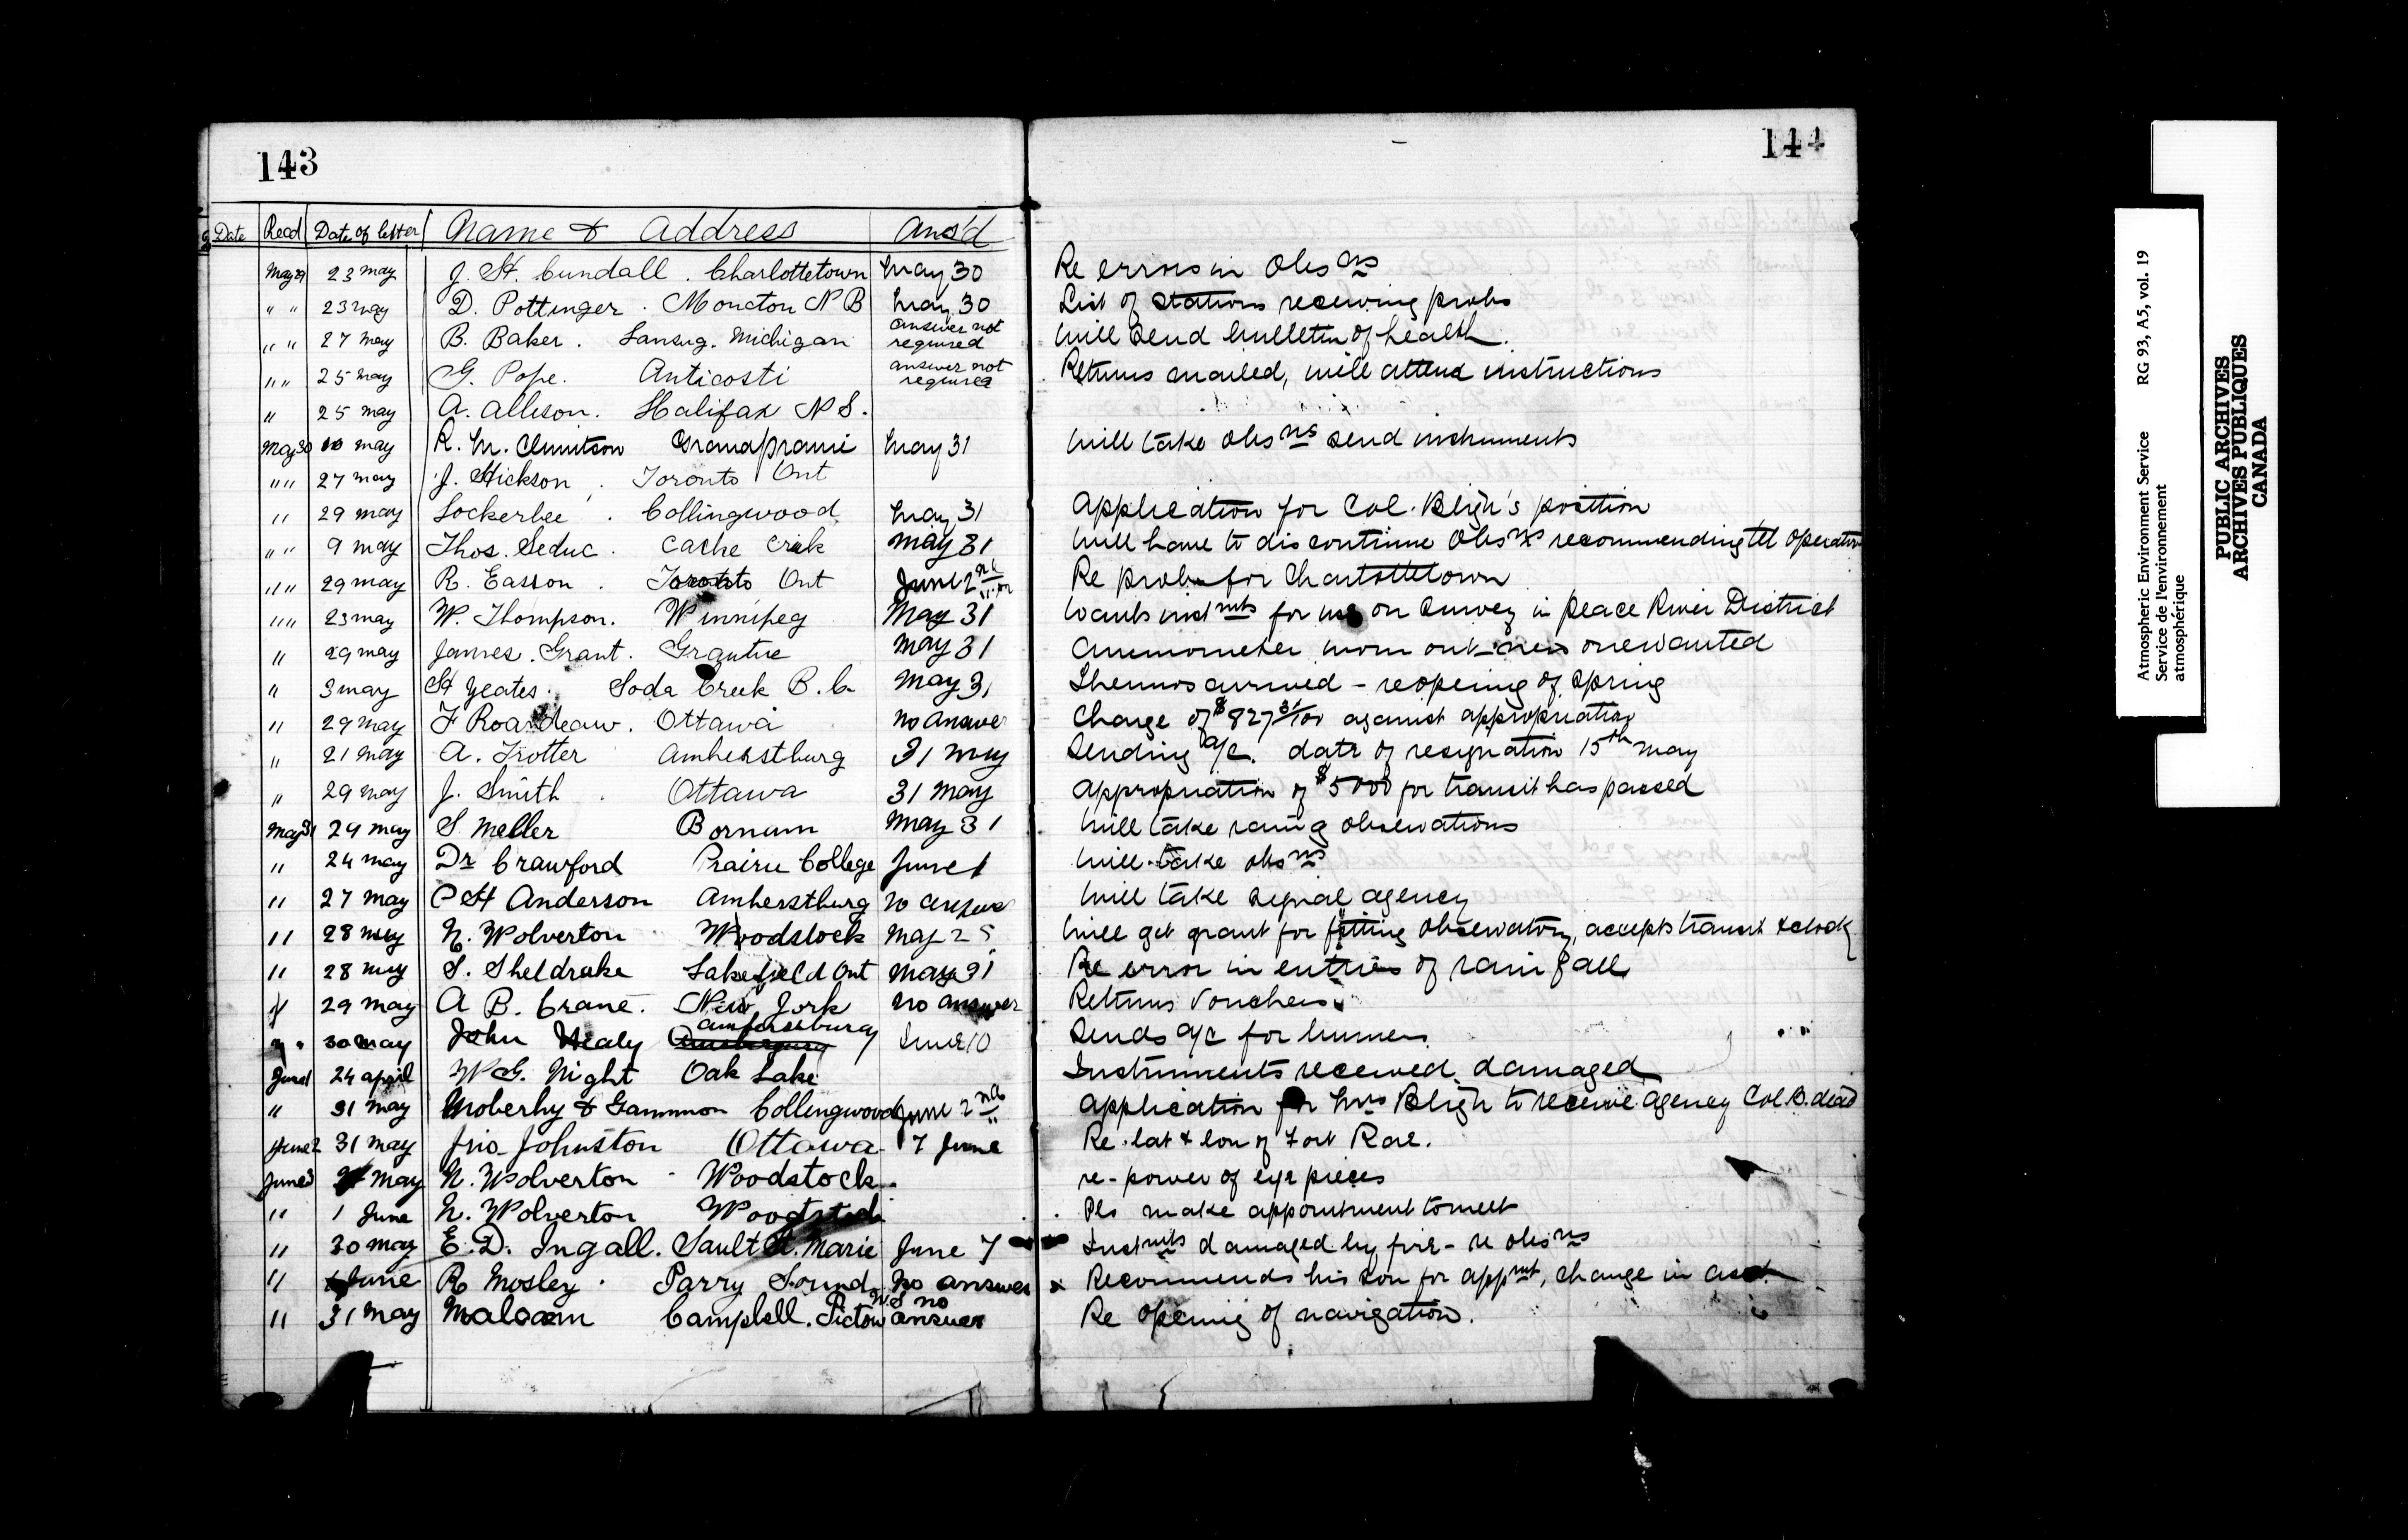 143
Date Recd Date of letter Name & Address Ans'd
May 29 23 May J. H. Cundall. Charlottetown May 30
" " 23 May D. Pottinger. Moncton N B May 30
" " 27 May B. Baker. Lansug. Michigan answer not required
" " 25 May G. Pope. Anticosti answer not required
" 25 May A. Allison. Halifax N S.
May 30 May R. M. Grandprairie May 31
" " 27 May J. Hickson. Toronto Ont
" 29 May Lockerbee. Collingwood May 31
" " 9 May Thos. Seduc. Cache Creek May 31
" " 29 May R. Easson. Toronto Ont June 2nd
" " 23 May W. Thompson. Winnipeg May 31
" 29 May James. Grant. May 31
" 3 May H Yeates. Soda Creek B. C. May 31
" 29 May F Ottawa no answer
" 21 May A. Trotter Amherstburg 31 May
" 29 May J. Smith. Ottawa 31 May
May 31 29 May S. Meller Bornum May 31
" 24 May Dr Crawford Prairie College June 1
" 27 May C H Anderson Amherstburg no answer
" 28 May N. Wolverton Woodstock May
" 28 May S. Sheldrake Lakefield Ont May 31
" 29 May A B. Crane. New York no answer
" 30 May John Healy Amherstburg June 10
June 1 24 April W G. Night Oak Lake
" 31 May Moberly & Gammon Collingwood June 2nd
June 2 31 May Jno. Johnston Ottawa 7 June
June 3 May N. Wolverton Woodstock.
" 1 June N. Wolverton Woodstock
" 30 May E. D. Ingall. Sault St. Marie June 7
" June R Mosley. Parry Sound no answer
" 31 May Malcom Campbell. Pictou N.S no answer
144
Re errors in Obsns
List of stations receiving probs
Will send bulletin of health.
Returns mailed, will attend instructions
Will take obsns send instruments
Application for Col. Bligh's position
Will have to discontinue Obsns recommending tel operator
Re probs for Charlottetown
Wants instmts for use on Survey in Peace River District
Anemometer worn out - new one wanted
Thermos arrived - reopening of Spring
Charge of $827 31/100 against appropriation
Sending a/c. date of resignation 15th May
Appropriation of $5000 for transit has passed
Will take raing observations
Will take obsns
Will take signal agency
Will get grant for fitting Observatory, accepts transit & clock
Re error in entries of rain fall
Returns Vouchers
Sends a/c for
Instruments received damaged
Application for Mrs Bligh to receive agency Col. B. dead
Re. lat & lon of Fort Rae.
re - power of eye pieces
Pls make appointment to meet
Instmts damaged by fire - re obsns
x Recommends his son for appmt, change in
Re opening of navigation.
Atmospheric Environment Service RG 93, A5, vol. 19
Service de l'environnement
atmosphérique
PUBLIC ARCHIVES
ARCHIVES PUBLIQUES
CANADA